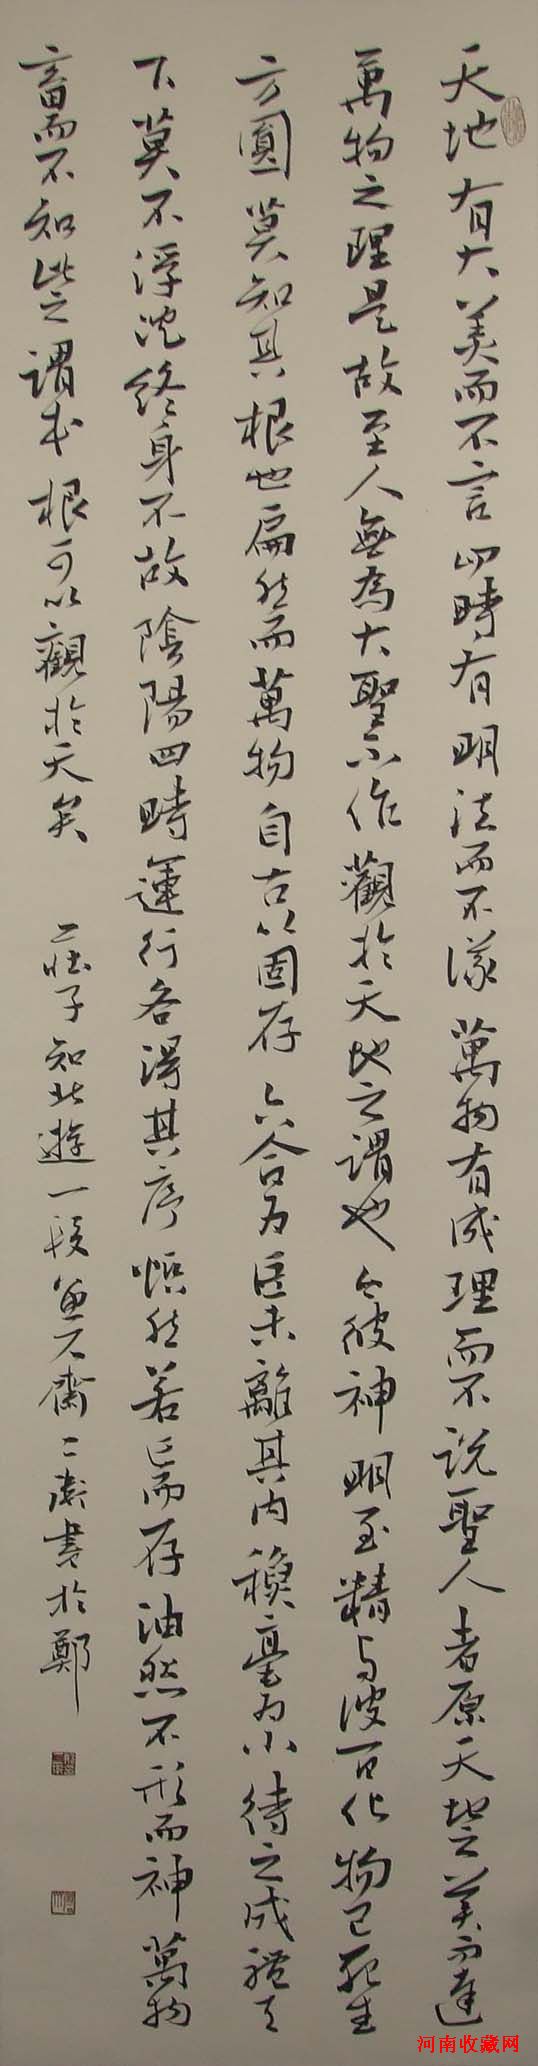 天地有大美而不言四時有明法而不議萬物有成理而不說聖人者原天地之美而達
萬物之理是故至人無為大聖不作觀於天地之謂也今彼神明至精與彼百化物已死生
方圓莫知其根也扁然而萬物自古以固存六合為巨未離其內穐毫為小待之成體天
下莫不浮沈終身不故陰陽四時運行各得其序惛然若亡而存油然不形而神萬物
畜而不知此之謂本根可以觀於天矣
莊子知北遊一段 齋 書於鄭
河南收藏网